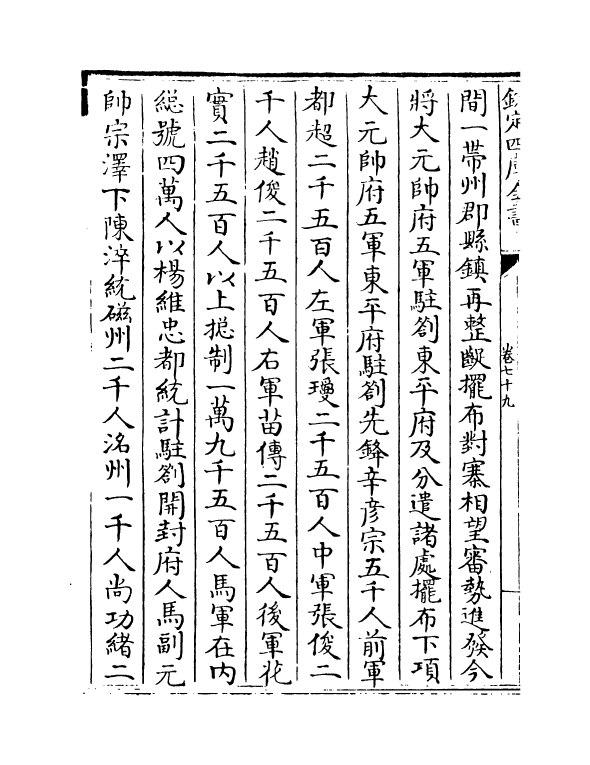 欽定四庫全書
卷七十九
間一帶州郡縣鎮再整齪擺布對寨相望審勢進發今
將大元帥府五軍駐劄東平府及分遣諸處擺布下項
大元帥府五軍東平府駐劄先鋒辛彦宗五千人前軍
都超二千五百人左軍張瓊二千五百人中軍張俊二
千人趙俊二千五百人右軍苗傅二千五百人後軍范
實二千五百人以上摠制一萬九千五百人馬軍在内
總號四萬人以楊維忠都統計駐劄開封府人馬副元
帥宗澤下陳淬統磁州二千人洺州一千人尚功緒二